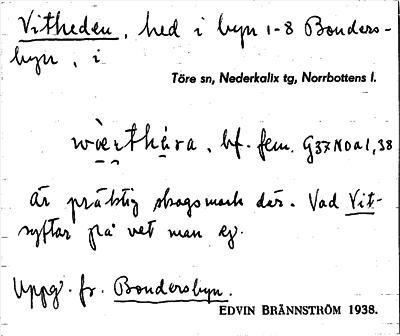 Vitheden, hed i byn 1-8 Bonders-
byn, i
Töre sn, Nederkalix tg, Norrbottens l.
bf. fem.
är präktig skogsmark där. Vad Vit-
syftar på vet man ej.
Uppg. fr. Bondersbyn.
EDVIN BRÄNNSTRÖM 1938.